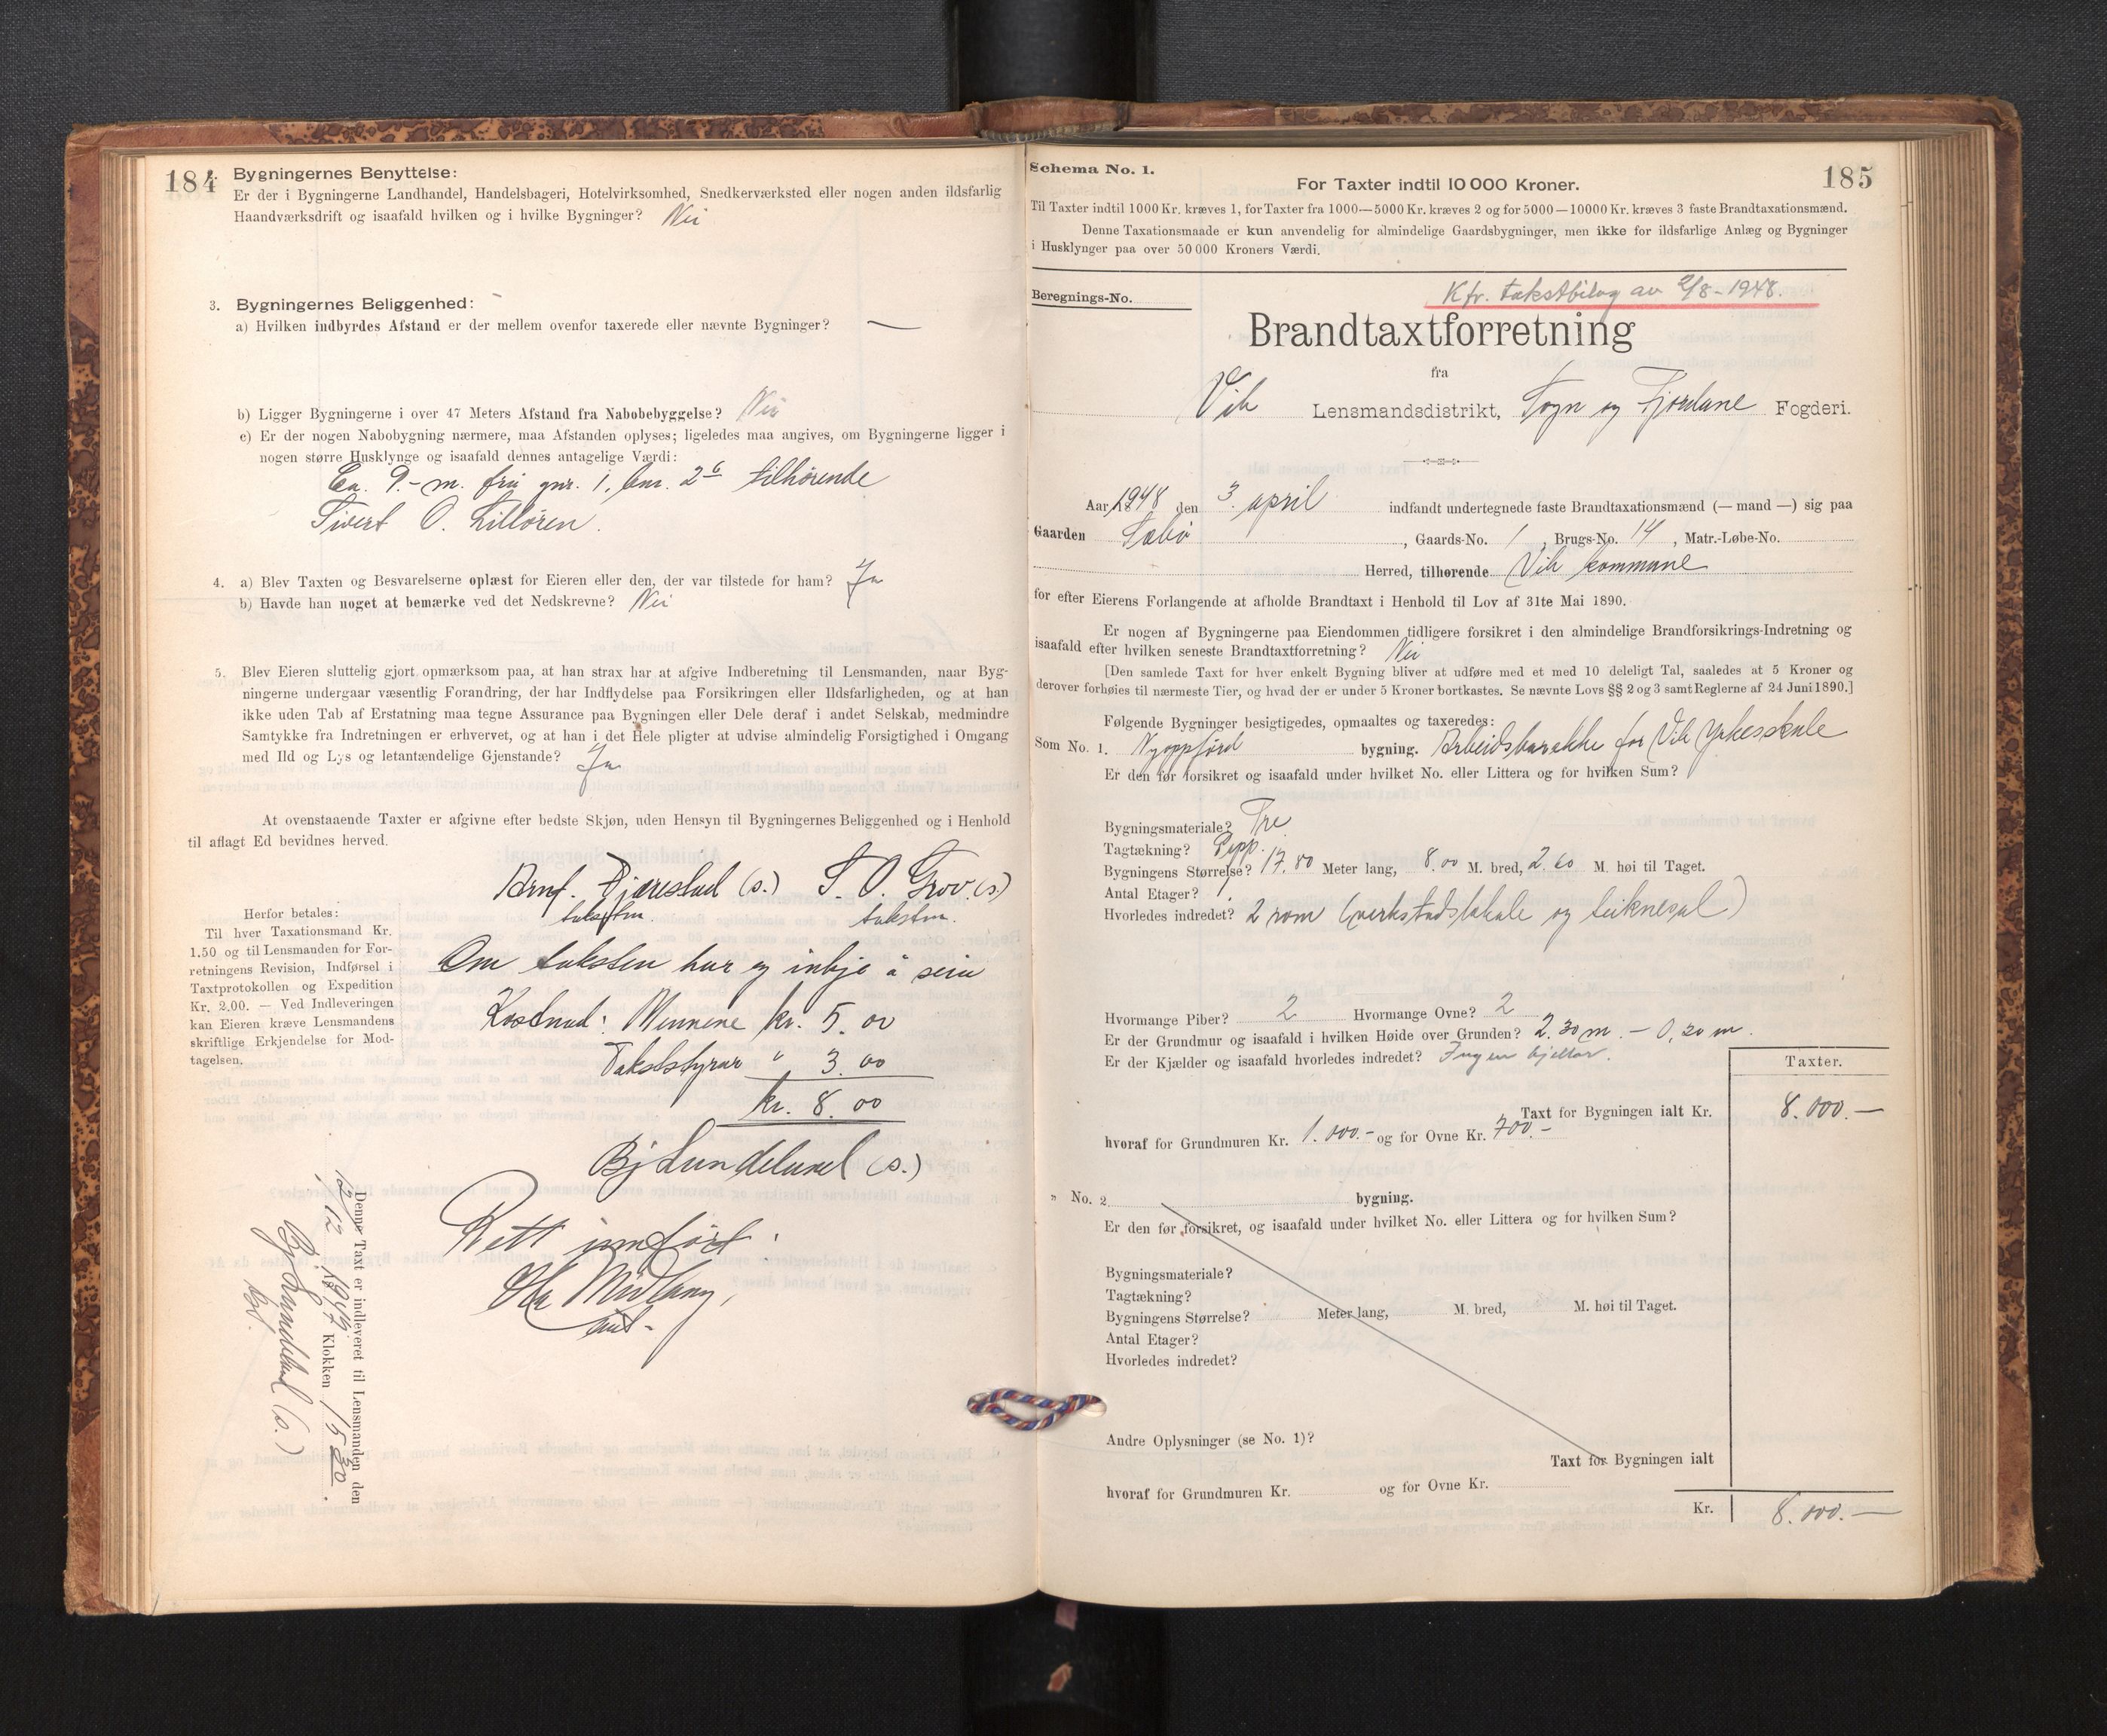 184
2. Bygningernes Benyttelse:
Er der i Bygningerne Landhandel, Handelsbageri, Hotelvirksomhed, Snedkerværksted eller nogen anden ildsfarlig
Haandværksdrift og isaafald hvilken og i hvilke Bygninger? Nei
3. Bygningernes Beliggenhed:
a) Hvilken indbyrdes Afstand er der mellem ovenfor taxerede eller nævnte Bygninger? —
b) Ligger Bygningerne i over 47 Meters Afstand fra Nabobebyggelse? Nei
c) Er der nogen Nabobygning nærmere, maa Afstanden oplyses; ligeledes maa angives, om Bygningerne ligger i
nogen større Husklynge og isaafald dennes antagelige Værdi:
Ca. 9.- m. frå gnr. 1, bnr. 26 tilhörende
Sivert O. Lillören.
4. a) Blev Taxten og Besvarelserne oplæst for Eieren eller den, der var tilstede for ham? Ja
b) Havde han noget at bemærke ved det Nedskrevne? Nei
5. Blev Eieren sluttelig gjort opmærksom paa, at han strax har at afgive Indberetning til Lensmanden, naar Byg-
ningerne undergaar væsentlig Forandring, der har Indflydelse paa Forsikringen eller Ildsfarligheden, og at han
ikke uden Tab af Erstatning maa tegne Assurance paa Bygningen eller Dele deraf i andet Selskab, medmindre
Samtykke fra Indretningen er erhvervet, og at han i det Hele pligter at udvise almindelig Forsigtighed i Omgang
med Ild og Lys og letantændelige Gjenstande? Ja
At ovenstaaende Taxter er afgivne efter bedste Skjøn, uden Hensyn til Bygningernes Beliggenhed og i Henhold
til aflagt Ed bevidnes herved.
Arnf. Tjærestad (s.) S. O. Grov. (s)
takstm. takstm.
Herfor betales:
Til hver Taxationsmand Kr.
1.50 og til Lensmanden for For-
retningens Revision, Indførsel i
Taxtprotokollen og Expedition
Kr. 2.00. — Ved Indleveringen
kan Eieren kræve Lensmandens
skriftlige Erkjendelse for Mod-
tagelsen.
Om taksten har eg inkje å seia
Kostnad: Mennene kr. 5.00
Takststyrar " 3.00
kr. 8.00
Bj Lundelund (s.)
Rett innført.
Denne Taxt er indleveret til Lensmanden den
12/12 1947 Klokken 15 30.
Bj Lundelund (s.)
Schema No. 1.
185
For Taxter indtil 10 000 Kroner.
Til Taxter indtil 1000 Kr. kræves 1, for Taxter fra 1000—5000 Kr. kræves 2 og for 5000—10000 Kr. kræves 3 faste Brandtaxationsmænd.
Denne Taxationsmaade er kun anvendelig for almindelige Gaardsbygninger, men ikke for ildsfarlige Anlæg og Bygninger
i Husklynger paa over 50 000 Kroners Værdi.
Beregnings-No.
Kfr. takstbilag av 2/8-1948.
Brandtaxtforretning
fra
Vik Lensmandsdistrikt, Sogn og Fjordane Fogderi.
Aar 1948 den 3. april indfandt undertegnede faste Brandtaxationsmænd (— mand —) sig paa
Gaarden Sæbö, Gaards-No. 1, Brugs-No. 14, Matr.-Løbe-No.
Herred, tilhørende Vik kommune
for efter Eierens Forlangende at afholde Brandtaxt i Henhold til Lov af 31te Mai 1890.
Er nogen af Bygningerne paa Eiendommen tidligere forsikret i den almindelige Brandforsikrings-Indretning og
isaafald efter hvilken seneste Brandtaxtforretning? Nei
[Den samlede Taxt for hver enkelt Bygning bliver at udføre med et med 10 deleligt Tal, saaledes at 5 Kroner og
derover forhøies til nærmeste Tier, og hvad der er under 5 Kroner bortkastes. Se nævnte Lovs §§ 2 og 3 samt Reglerne af 24 Juni 1890.]
Følgende Bygninger besigtigedes, opmaaltes og taxeredes:
Som No. 1. Nyoppförd bygning. Arbeidsbarakke for Vik Yrkesskule
Er den før forsikret og isaafald under hvilket No. eller Littera og for hvilken Sum?
Bygningsmateriale? Tre
Tagtækning? Papp.
Bygningens Størrelse? 17.80 Meter lang, 8.00 M. bred, 2.60 M. høi til Taget.
Antal Etager? 1.
Hvorledes indredet? 2 rom (verkstadslokale og teiknesal)
Hvormange Piber? 2 Hvormange Ovne? 2
Er der Grundmur og isaafald i hvilken Høide over Grunden? 2.30 m. — 0,20 m.
Er der Kjælder og isaafald hvorledes indredet? Ingen kjellar.
Taxter.
Taxt for Bygningen ialt Kr. 8.000.—
hvoraf for Grundmuren Kr. 1.000.- og for Ovne Kr. 700.—
" No. 2 bygning.
Er den før forsikret, og isaafald under hvilket No. eller Littera og for hvilken Sum?
Bygningsmateriale?
Tagtækning?
Bygningens Størrelse? Meter lang, M. bred, M. høi til Taget.
Antal Etager?
Hvorledes indredet?
Andre Oplysninger (se No. 1)?
Taxt for Bygningen ialt
hvoraf for Grundmuren Kr. og for Ovne Kr.
Kr. 8.000.—